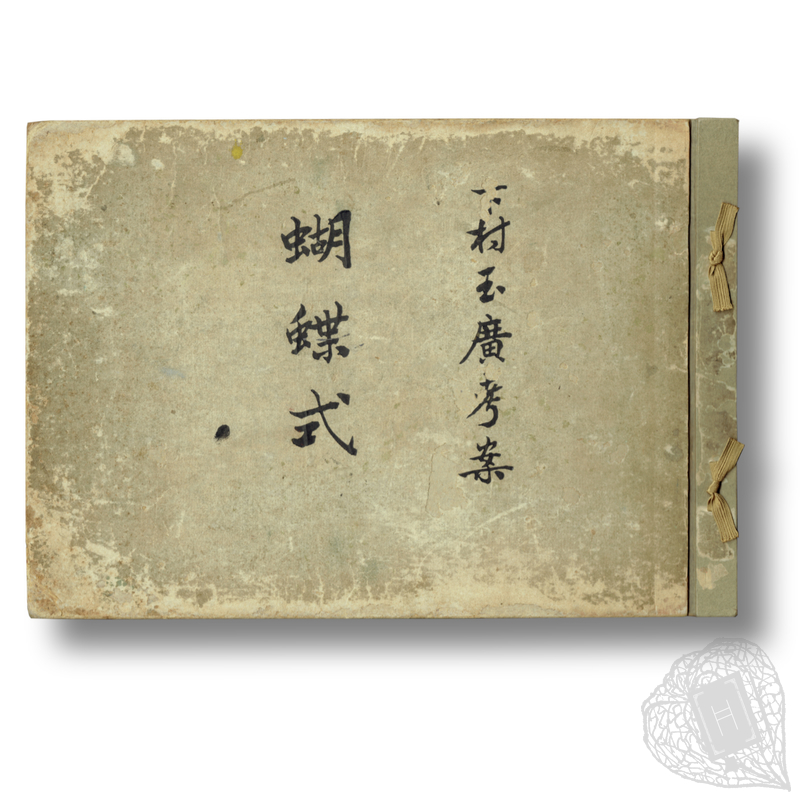 下村玉廣考案
蝴蝶式
H